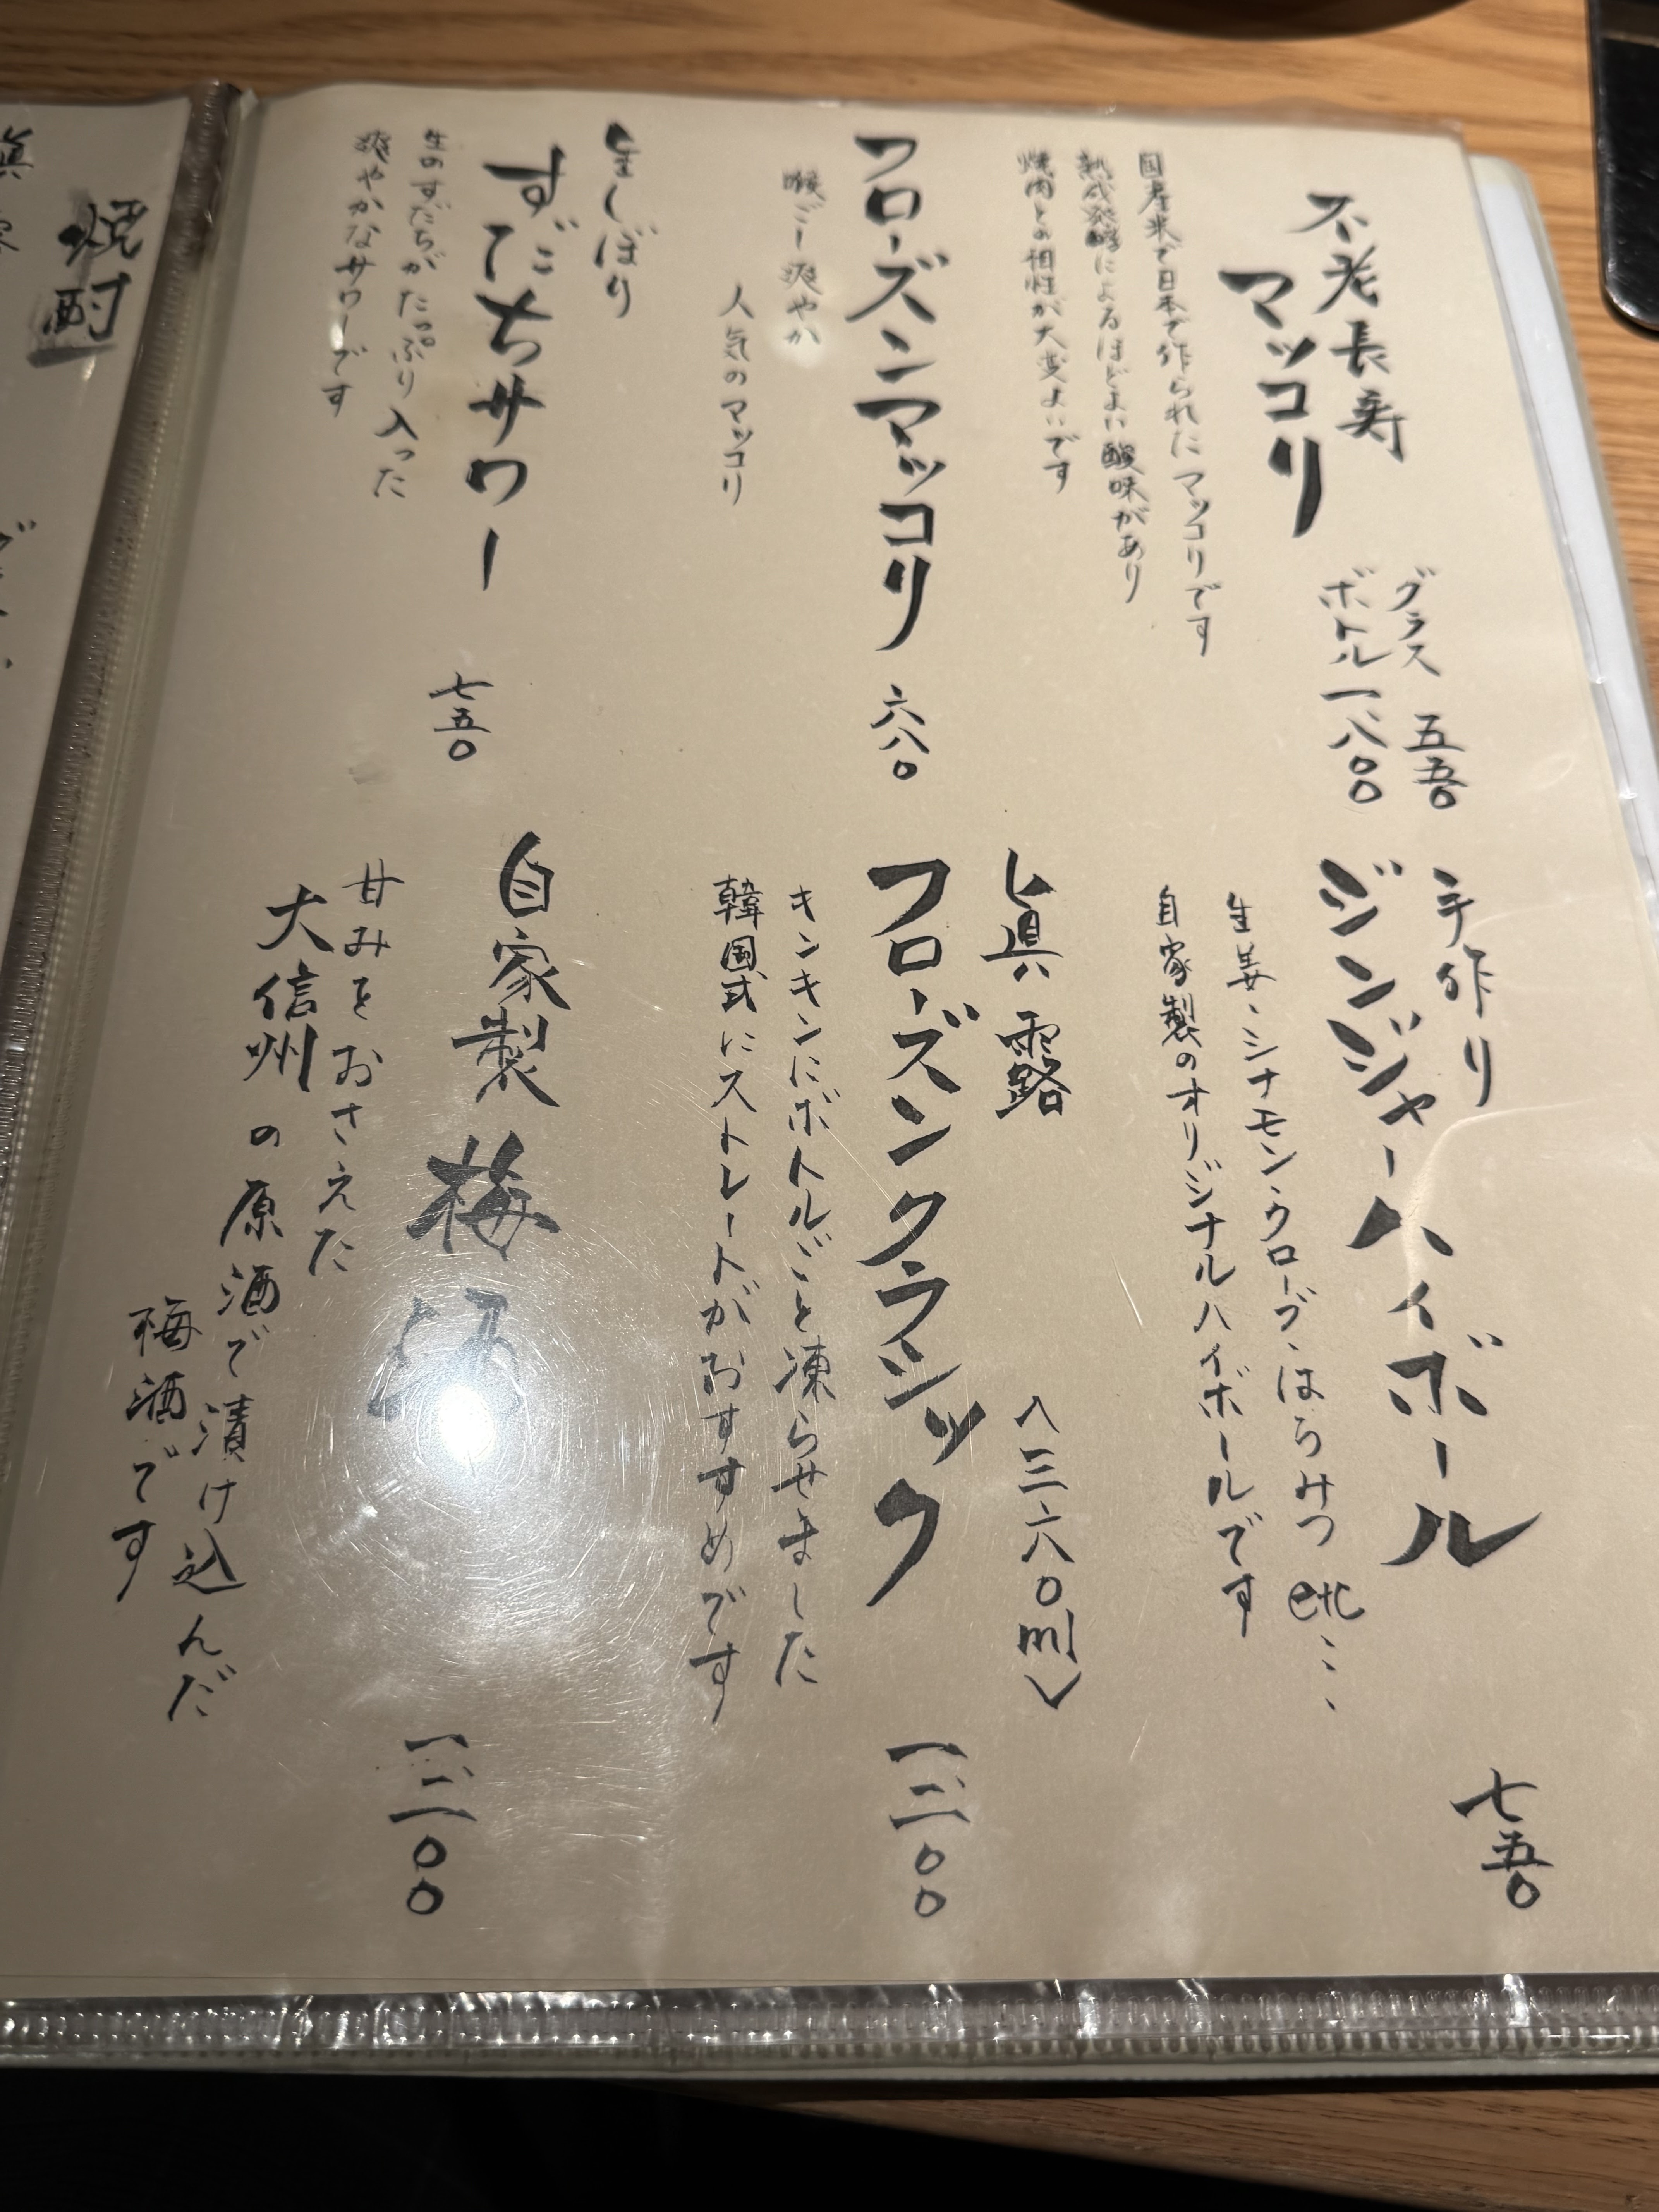 不老長寿
マッコリ
グラス 五五〇
ボトル 一八〇〇
国産米で日本で作られたマッコリです
熟成発酵によるほどよい酸味があり
焼肉との相性が大変よいです
フローズンマッコリ 六八〇
喉ごし爽やか
人気のマッコリ
生しぼり
すだちサワー 七五〇
生のすだちがたっぷり入った
爽やかなサワーです
手作り
ジンジャーハイボール 七五〇
生姜・シナモン・クローブ・はちみつ etc...
自家製のオリジナルハイボールです
眞露
〈三六〇ml〉
フローズンクラシック 一二〇〇
キンキンにボトルごと凍らせました
韓国式にストレートがおすすめです
自家製 梅酒 一二〇〇
甘みをおさえた
大信州の原酒で漬け込んだ
梅酒です
焼酎
眞